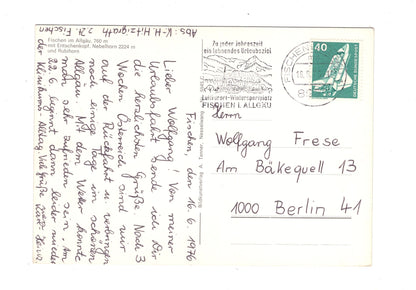 Abs.: K.-H. Hitzigrath
z.Zt. Fischen
Fischen im Allgäu, 760 m
mit Entschenkopf, Nebelhorn 2224 m
und Rubihorn
Fischen, den 16.6.1976
Lieber Wolfgang! Von meiner
Urlaubsfahrt sende ich Dir
die herzlichsten Grüße. Nach 3
Wochen Österreich sind wir
auf der Rückfahrt u. verbringen
noch einige Tage im schönen
Allgäu. Mit dem Wetter konnte
man sehr zufrieden sein. Am
22.6. beginnt dann leider wieder
der Alltag. Viele Grüße
Zu jeder Jahreszeit
ein lohnendes Urlaubsziel
Luftkurort - Wintersportplatz
FISCHEN I. ALLGÄU
FISCHEN
40
DEUTSCHE BUNDESPOST
Herrn
Wolfgang Frese
Am Bäkequell 13
1000 Berlin 41